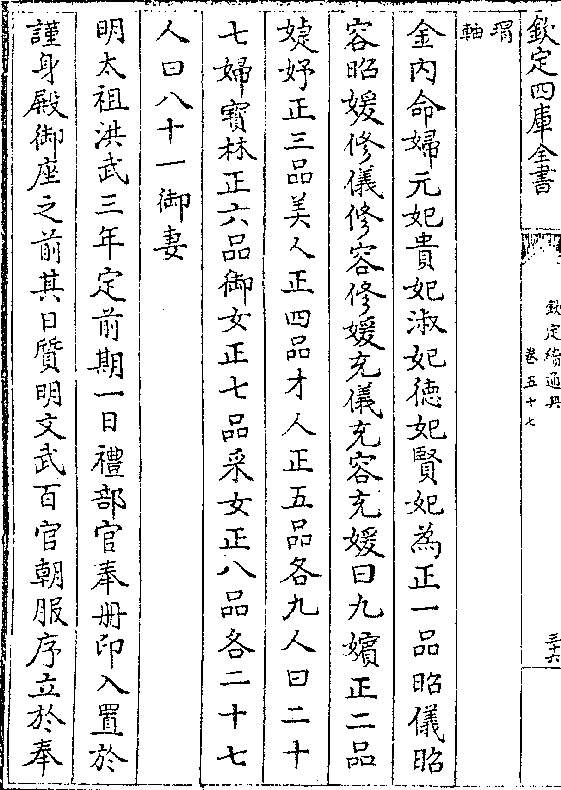 欽定四庫全書
欽定續通典
卷五十七
三十六
渭
軸
金內命婦元妃貴妃淑妃德妃賢妃為正一品昭儀昭
容昭媛修儀修容修媛充儀充容充媛曰九嬪正二品
婕妤正三品美人正四品才人正五品各九人曰二十
七婦寶林正六品御女正七品采女正八品各二十七
人曰八十一御妻
明太祖洪武三年定前期一日禮部官奉册印入置於
謹身殿御座之前其日質明文武百官朝服序立於奉